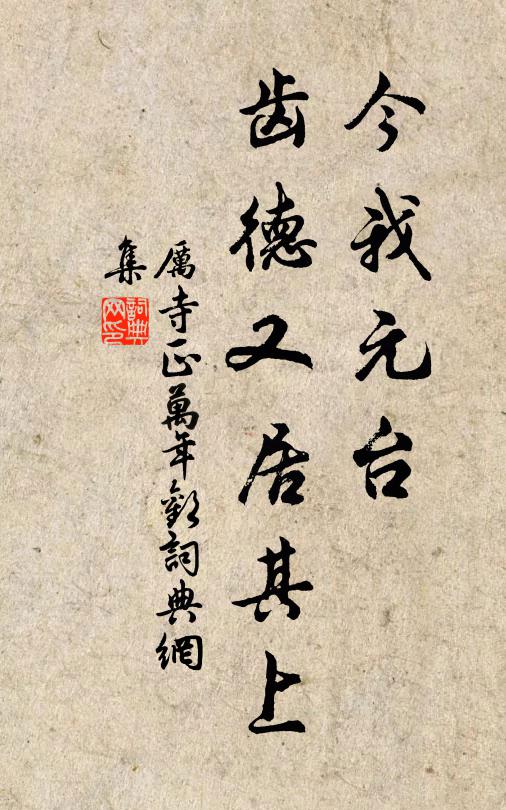 今我元台
齿德又居其上
厲寺正萬年歡詞典網
集
詞典
网印